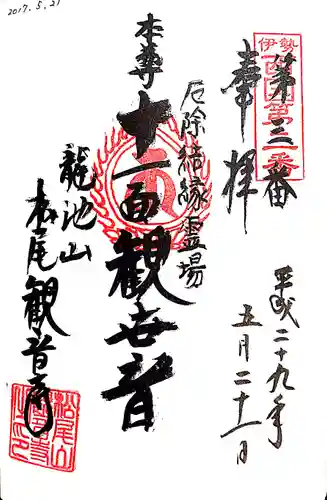 2017.5.21
伊勢
西国第三番
第三番
奉拝
平成二十九年
五月二十一日
厄除結縁霊場
本尊
十一面観世音
龍池山
松尾観音寺